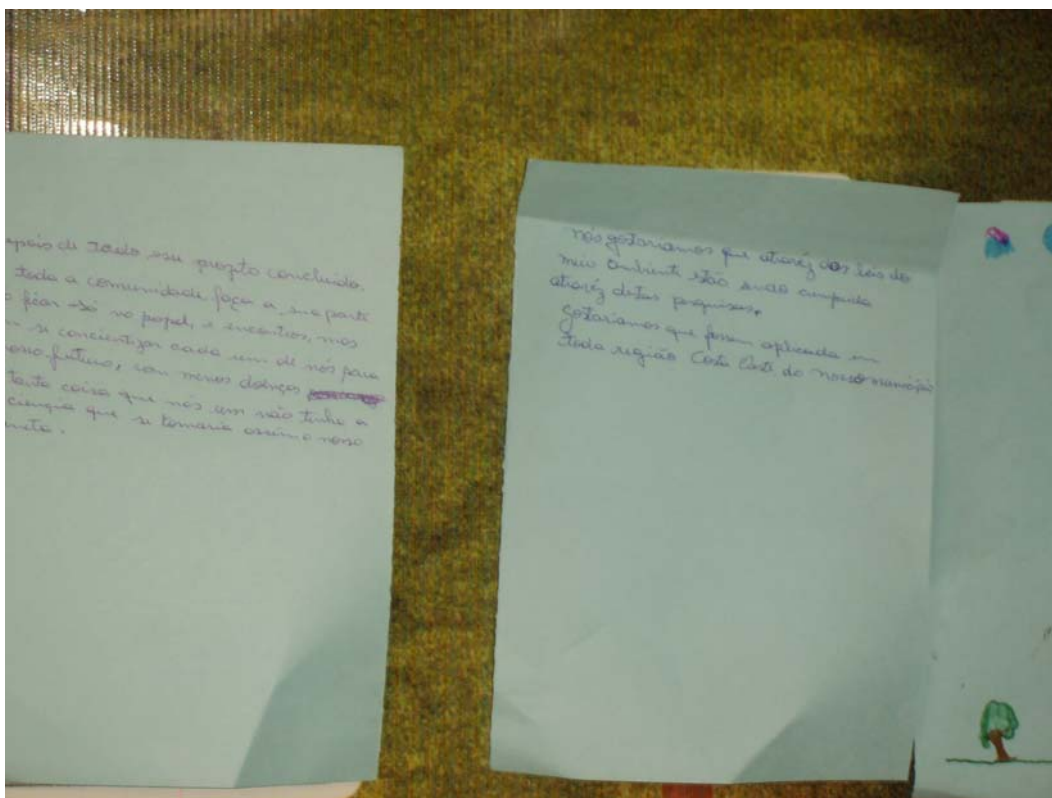 depois de todo esse projeto concluido.
toda a comunidade faça a sua parte
ficar só no papel, e encontros, mas
se concientizar cada um de nós para
nosso futuro, com menos doenças
tanta coisa que nós um não tinha a
que se tornaria assim o nosso
nós gostariamos que atravéz das leis do
meio ambiente estão sendo cumprida
atravéz destas pesquisas.
gostariamos que fossem aplicada em
toda região Costa Leste do nosso município